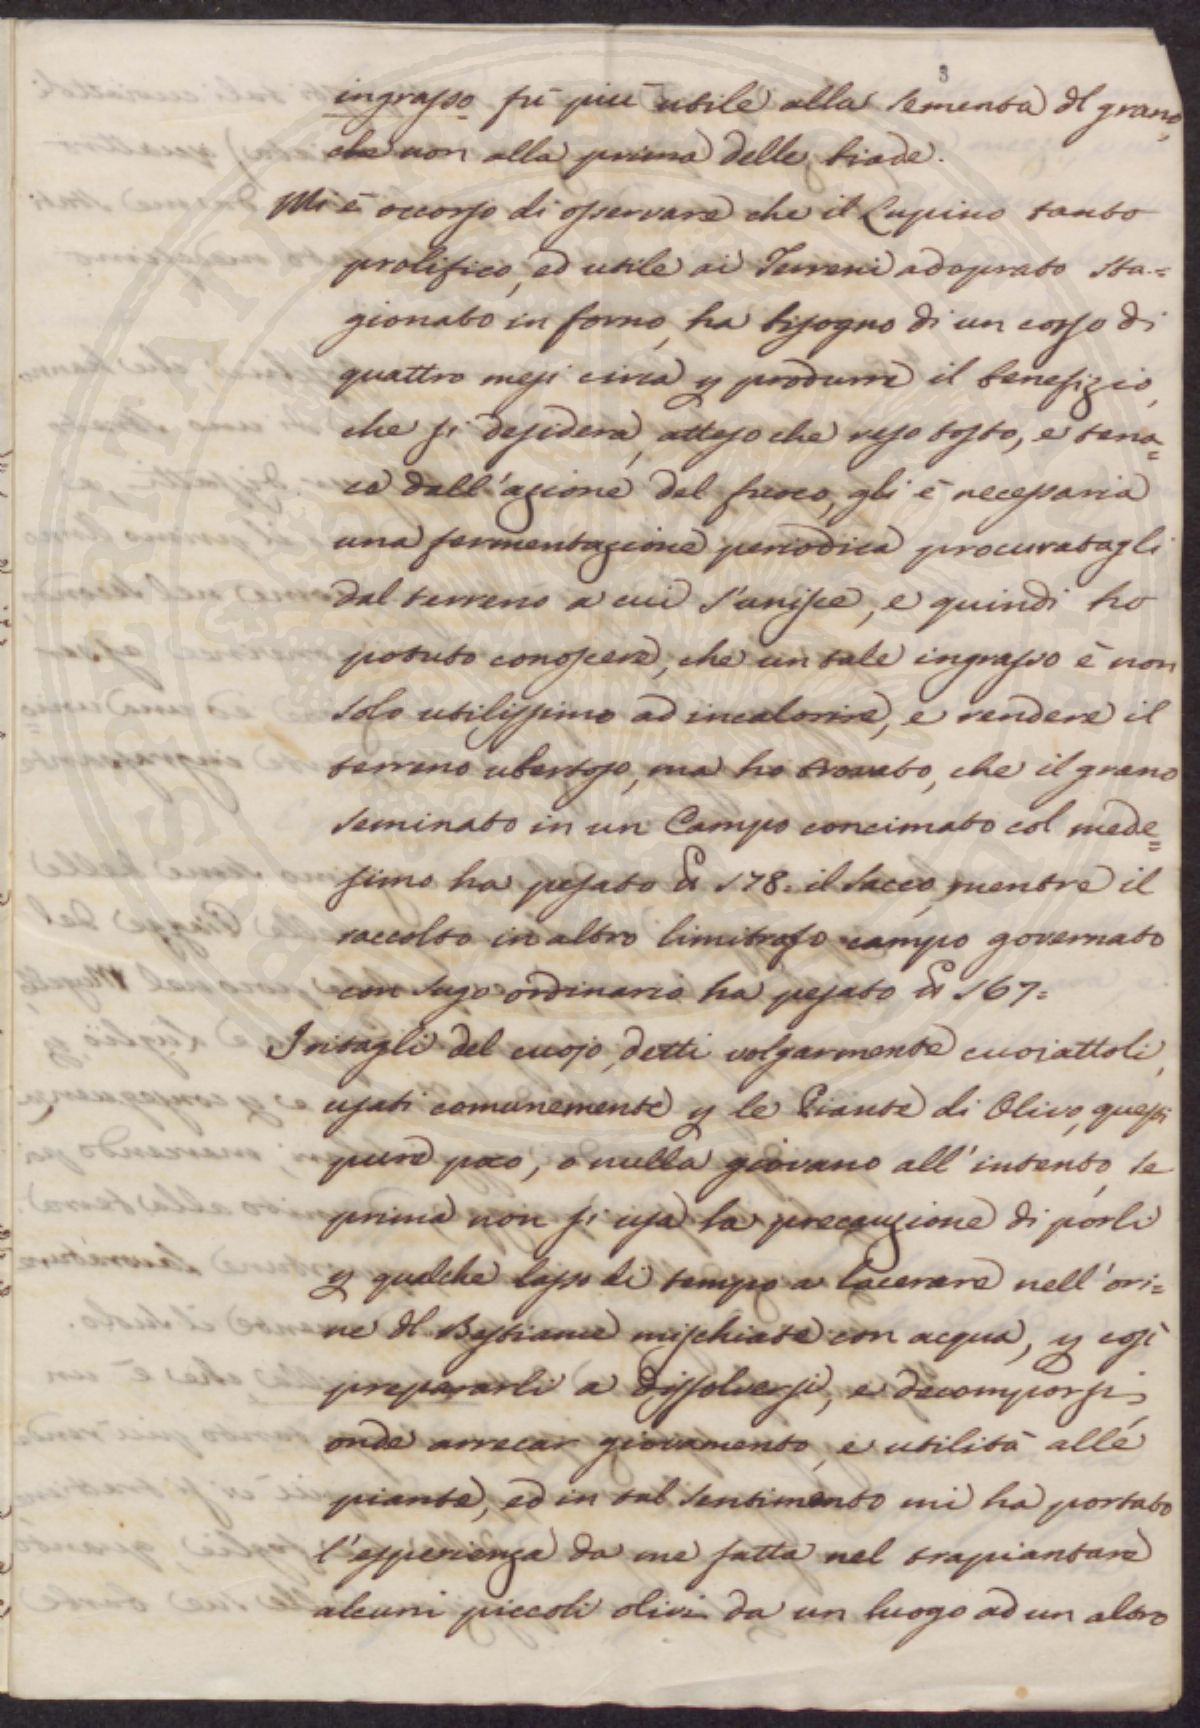 3
ingrasso fù più utile alla sementa dl grano,
che non alla prima delle biade.
Mi è occorso di osservare che il Lupino tanto
prolifico, ed utile ai Terreni adoprato sta=
gionato in forno, ha bisogno di un corso di
quattro mesi circa p produrre il benefizio,
che si desidera, atteso che reso tosto, e tena=
ce dall'azione del fuoco, gli è necessaria
una fermentazione periodica procuratagli
dal terreno a cui s'unisce, e quindi ho
potuto conoscere, che un tale ingrasso è non
solo utilissimo ad incalorire, e rendere il
terreno ubertoso, ma ho trovato, che il grano
seminato in un Campo concimato col mede=
simo ha pesato 178= il sacco, mentre il
raccolto in altro limitrofo campo governato
con sugo ordinario ha pesato 167=
I ritagli del cuojo, detti volgarmente cuoiattoli,
usati comunemente p le Piante di Olivo, questi
pure poco, o nulla giovano all'intento, se
prima non si usa la precauzione di porli
p qualche lasso di tempo a lacerare nell'ori=
ne dl Bestiame mischiate con acqua, p così
prepararli a dissolversi, e decomporsi,
onde arrecar giovamento, e utilità alle
piante, ed in tal sentimento mi ha portato
l'esperienza da me fatta nel trapiantare
alcuni piccoli olivi da un luogo ad un altro